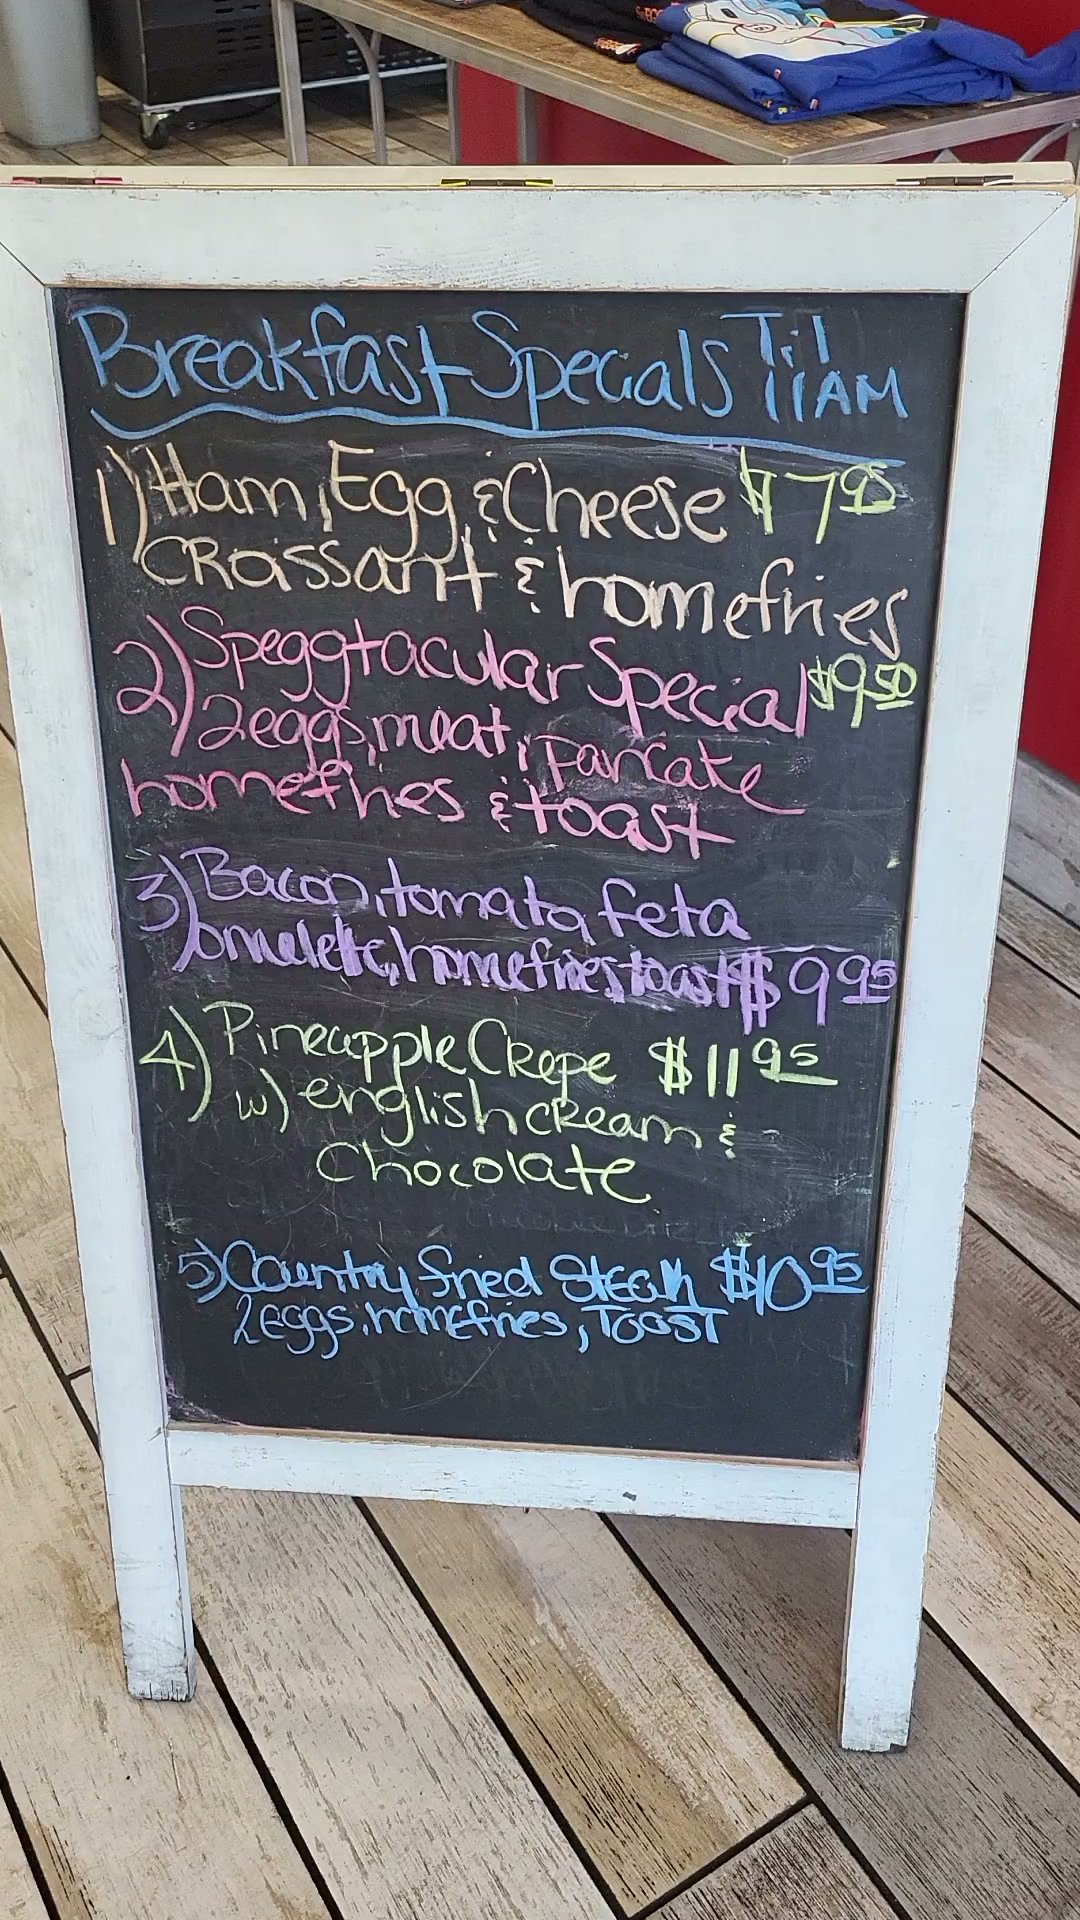 Breakfast Specials Til 11AM
1) Ham, Egg, & Cheese $7 95
CRoissant & homefries
2) Speggtacular Special $9 50
2eggs, meat, pancake
homefries & toast
3) Bacon, tomato, feta
omelette, homefries, toast $9 95
4) Pineapple CRepe $11 95
w) english cream &
Chocolate
5) Country fried Steak $10 95
2eggs, homefries, Toast